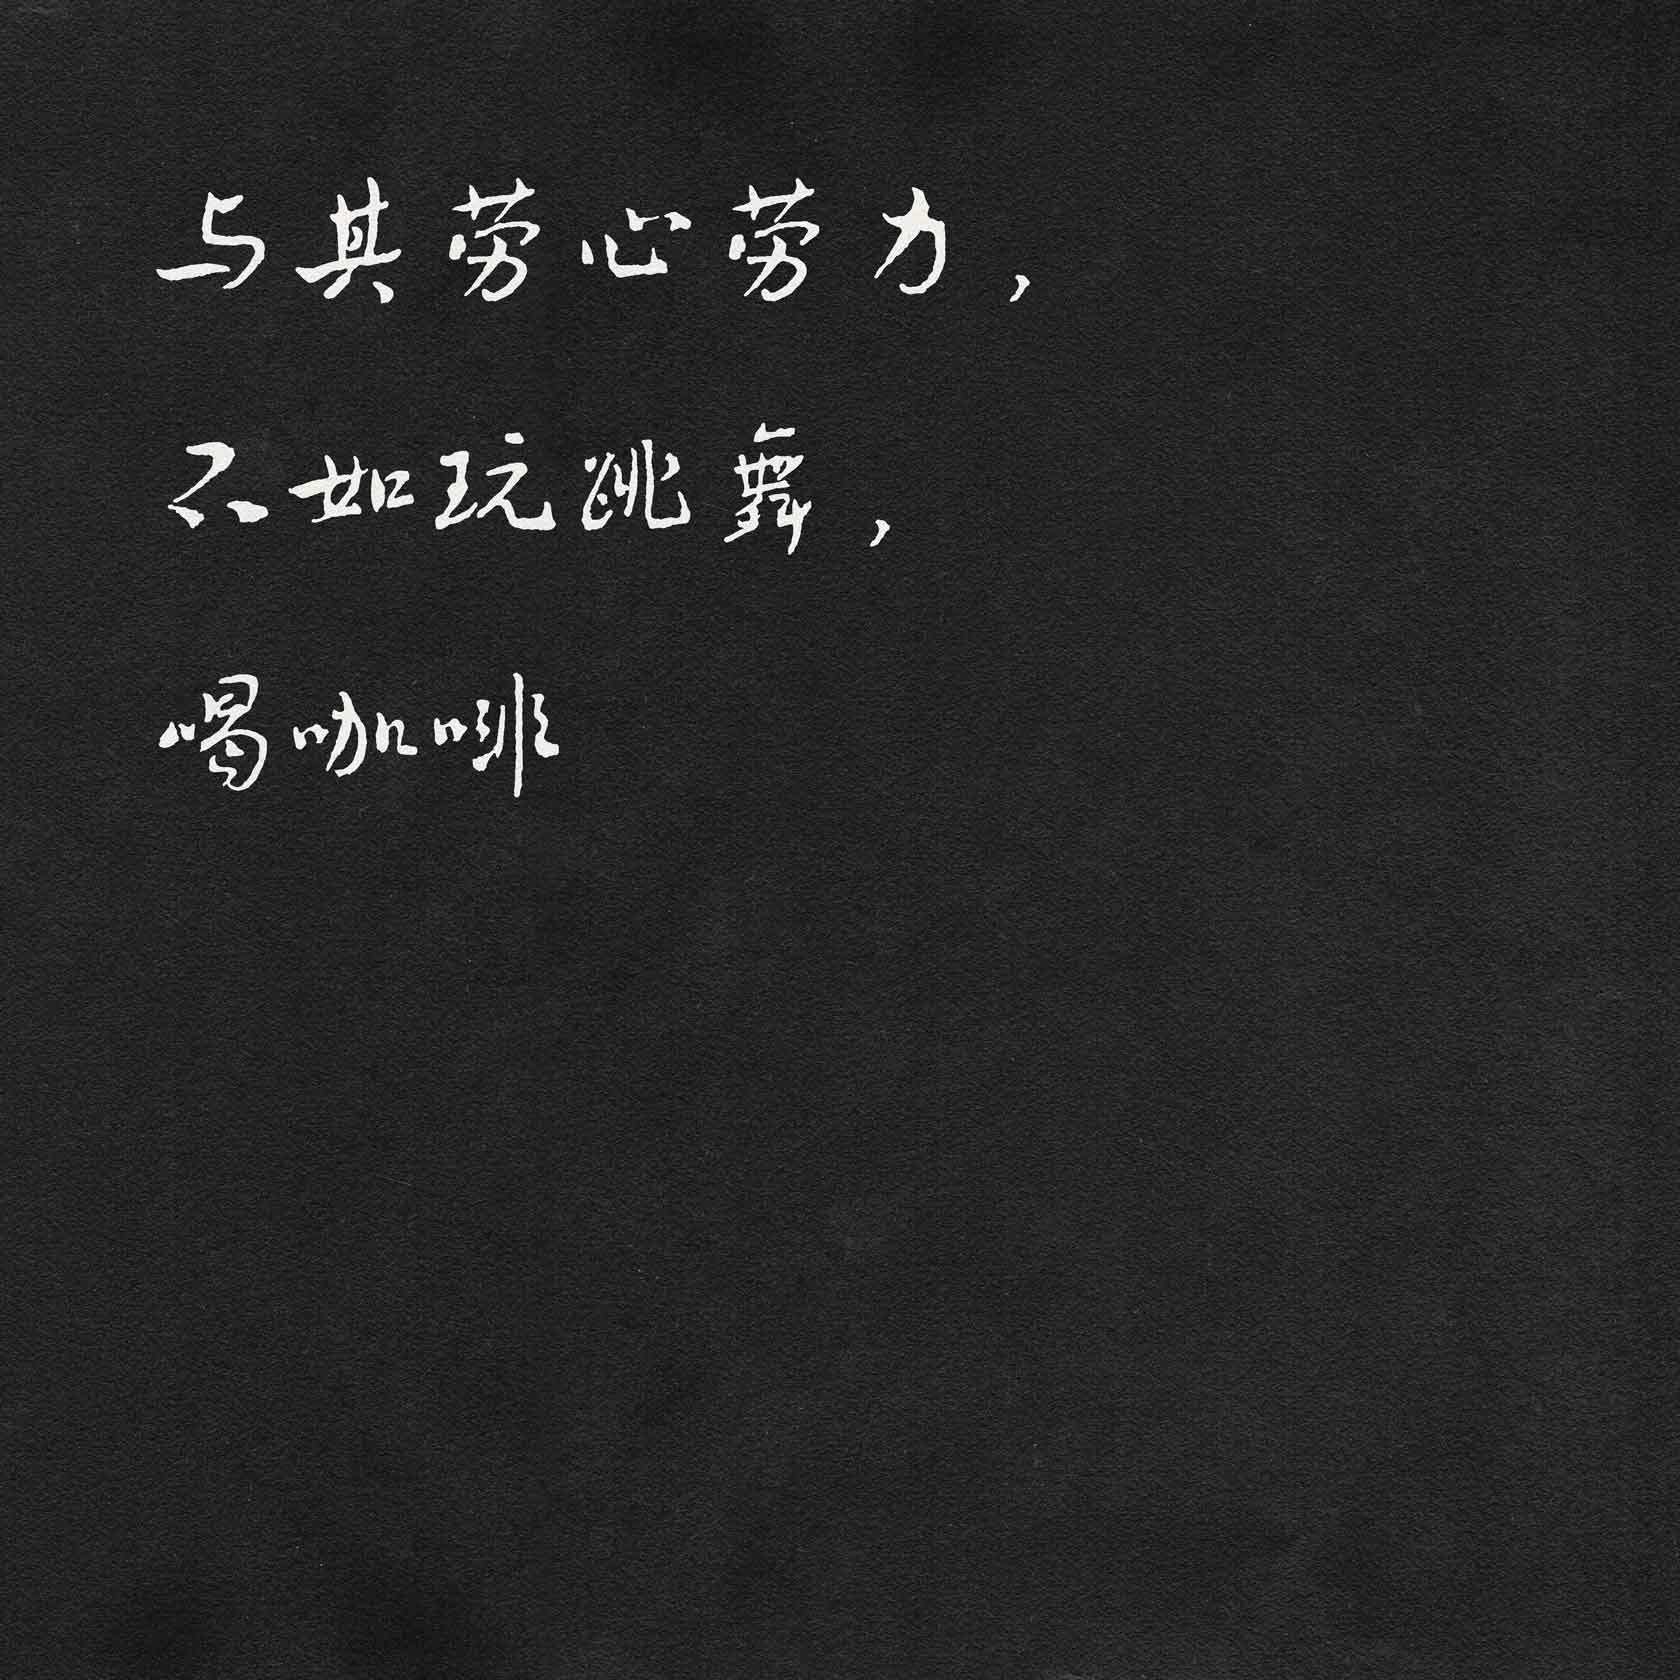 与其劳心劳力，
不如玩跳舞，
喝咖啡